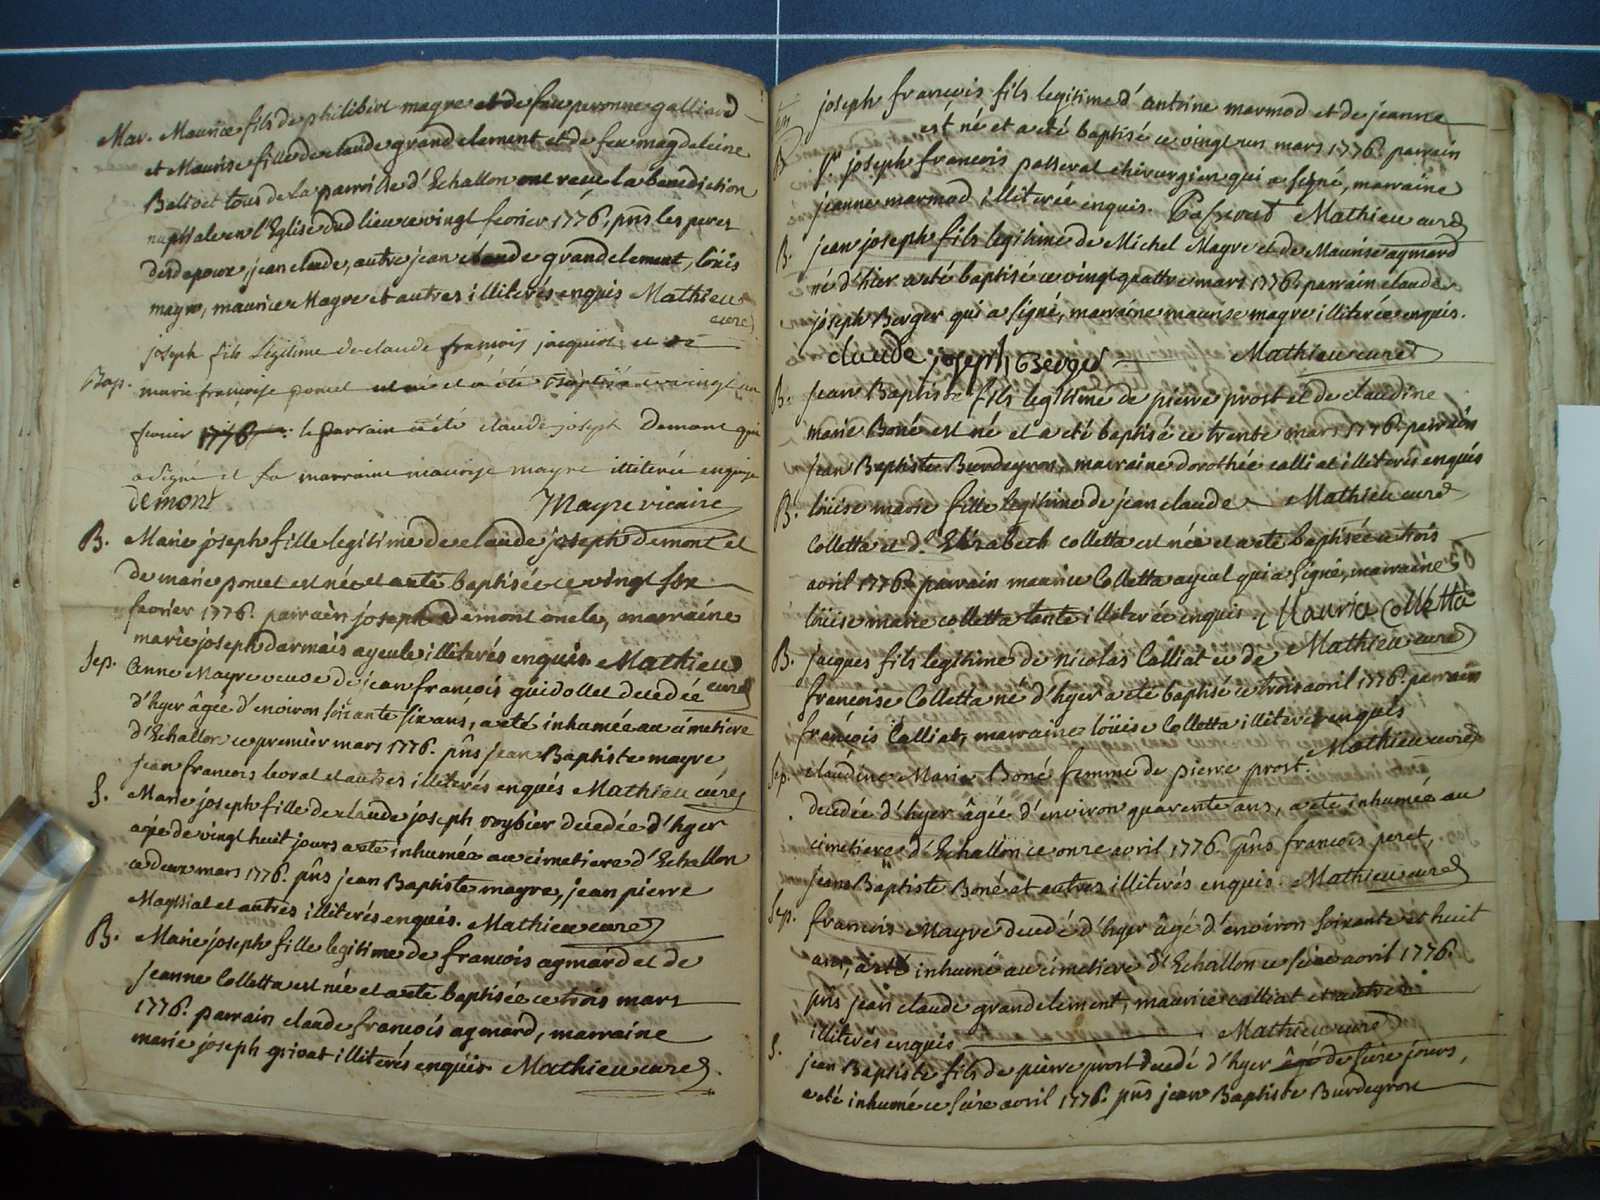 Mar. Maurice fils de philibert magre et de feu peronne galliard
et Maurise fille de claude grandclement et de feu magdeleine
Ballet tous de la parroisse d'Echallon ont reçu la benediction
nuptiale en l'Eglise dud lieu ce vingt fevrier 1776. pñs les peres
desd epoux jean claude, autre jean claude grandclement, loüis
mayre, maurice Magre et autres illiterés enquis Mathieu
curé
joseph fils Légitime de claude françois jacquiot et de
Bap. marie françoise poncet est né et a été Baptisé ce vingt un
fevrier 1776. le parrain a été claude joseph Demont qui
a signé et la marraine maurise mayre illiterée enquise
demont Mayre vicaire
B. Marie joseph fille legitime de claude joseph demont et
de marie poncet est née et a eté baptisée ce vingt six
fevrier 1776. parrain joseph demont oncle, marraine
marie joseph darmais ayeule illiterés enquis Mathieu
curé
Sep. Anne Mayre veuve de jean françois guidollet decedée
d'hyer âgée d'environ soixante six ans, a eté inhumée au cimetiere
d'Echallon ce premier mars 1776. pñs jean Baptiste mayre,
jean francois levrat et autres illiterés enqués Mathieu curé
S. Marie joseph fille de claude joseph roybier decedée d'hyer
agée de vingt huit jours a eté inhumée au cimetiere d'Echallon
ce deux mars 1776. pñs jean Baptiste mayre, jean pierre
Magniat et autres illiterés enqués. Mathieu curé
B. Marie joseph fille legitime de francois aymard et de
jeanne Colletta est née et a eté baptisée ce trois mars
1776. parrain claude francois aymard, marraine
marie joseph grivat illiterés enquis Mathieu curé
joseph francois fils legitime d'antoine marmod et de jeanne
est né et a eté baptisé ce vingt un mars 1776. parrain
B. sr joseph francois passerat chirurgien qui a signé, marraine
jeanne marmod illiterée enquis. Passerat Mathieu curé
B. jean joseph fils legitime de Michel Mayre et de Maurise aymard
né d'hier a eté baptisé ce vingt quattre mars 1776. parrain claude
joseph Berger qui a signé, marraine maurise mayre illiterée enquis.
claude joseph Berger Mathieu curé
B. Jean Baptiste fils legitime de pierre prost et de claudine
marie Boné est né et a eté baptisé ce trente mars 1776. parrain
Jean Baptiste Burdeyron, marraine dorothée calliat illiterés enqués
B. loüise marie fille legitime de jean claude Mathieu curé
Colletta et d. Elizabeth colletta est née et a eté baptisée ce trois
avril 1776. parrain maurice Colletta ayeul qui a signé, marraine
loüise marie colletta tante illiterée enquis. Mauric Colletta
B. jacques fils legitime de nicolas Calliat et de Mathieu curé
francoise Colletta né d'hyer a eté baptisé ce trois avril 1776. parrain
francois Calliat, marraine loüise Colletta illiterés enqués
Mathieu curé
Sep. claudine Marie Boné femme de pierre prost
decedée d'hyer âgée d'environ quarente ans, a eté inhumée au
cimetiere d'Echallon ce onze avril 1776. pñs francois peret,
jean Baptiste Boné et autres illiterés enquis. Mathieu curé
Sep. francois Mayre decedé d'hyer âgé d'environ soixante et huit
ans, a eté inhumé au cimetiere d'Echallon ce seize avril 1776.
pñs jean claude grandclement, maurice calliat et autres
illiterés enqués Mathieu curé
S. jean Baptiste fils de pierre prost decedé d'hyer âgé de seize jours,
a eté inhumé ce seize avril 1776. pñs jean Baptiste Burdeyron